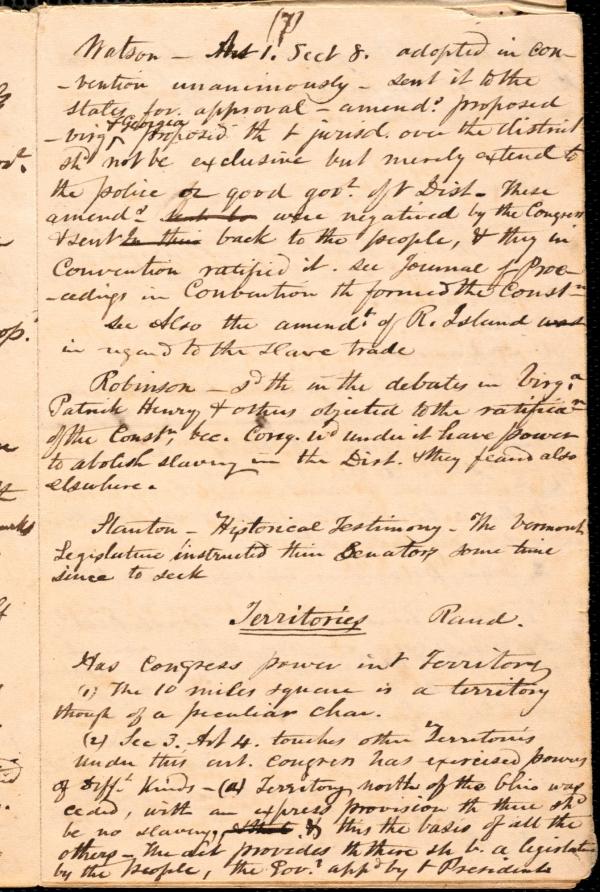 (7)
Watson – Art 1. Sect 8. adopted in con-
-vention unanimously – sent it to the
states for approval – amend.s proposed
& Georgia
– virg. proposed th t jurisd. over the district
shd not be exclusive but merely extend to
the police or good govt. of t Dist – These
amend.s were negatived by the Congress
& sent back to the people, & they in
Convention ratified it. see Journal of Proce-
-edings in Convention th formed the Constn
See Also the amendt. of R. Island
in regard to the slave trade
Robinson – sd th in the debates in Virga.
Patrick Henry & others objected to the ratifican
of the Constn, bec. Cong. wd under it have power
to abolish slavery in the Dist. & they feared also
elsewhere.
Stanton – Historical Testimony – The Vermont
Legislature instructed their Senators some time
since to seek
Territories Rand.
Has Congress power in t Territory
(1) The 10 miles square is a territory
though of a peculiar char.
(2) Sec 3. Art 4. touches other Territories
under this art. Congress has exercised powers
of Difft Kinds – (a) Territory north of the Ohio was
ceded, with an express provision th there shd
be no slavery, & this the basis of all the
others – The act provides th there sh b. a legislature
by the People, the Govr. appd by t President